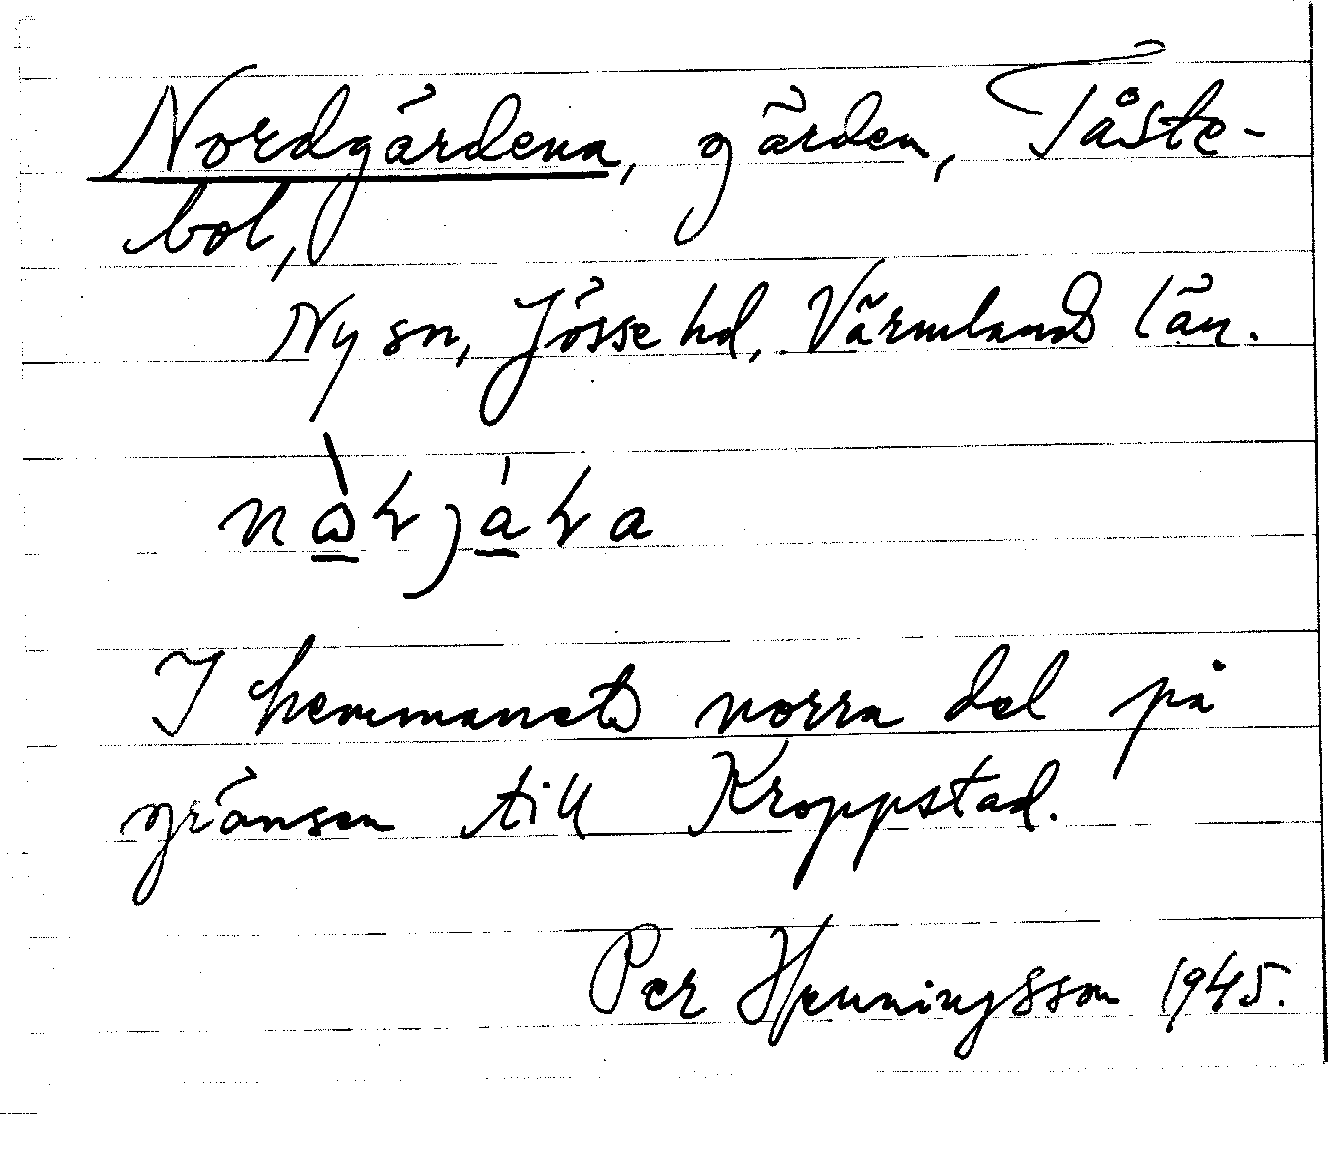 Nordgärdena, gärden, Tåste-
bol,
Ny sn, Jösse hd, Värmlands län.
I hemmanets norra del på
gränsen till Kroppstad.
Per Henningsson 1945.